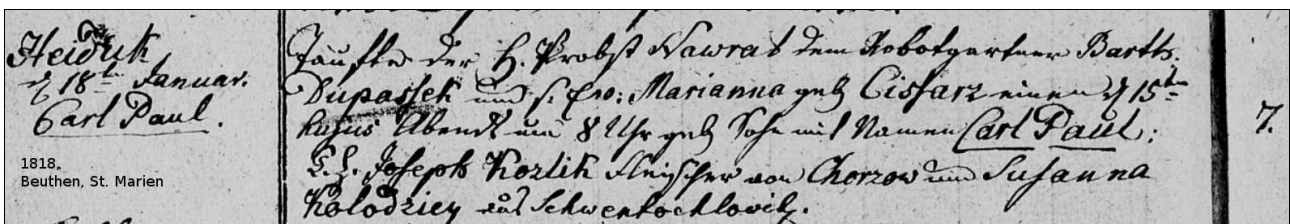 Heiduk
d 18t Januar.
Carl Paul.
1818.
Beuthen, St. Marien
Taufte der H. Probst Nawrat dem Robotgartner Barth.
Dupassek und s. Ew: Marianna geb Cisfarz einen d 15t
hujus Abends um 8 Uhr geb Sohn mit Namen Carl Paul:
L. L. Joseph Kozlik Fleischer von Chorzow und Susanna
Kolodziey aus Schwentochlowitz.
7.